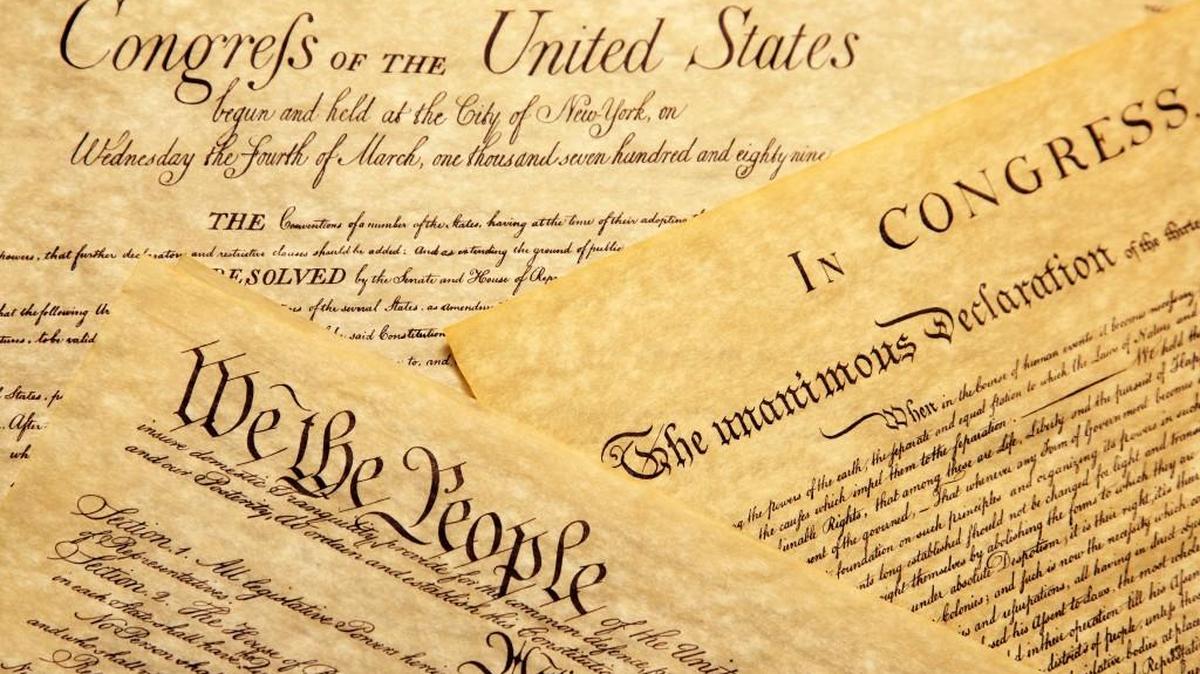 Congreſs OF THE United States
begun and held at the City of New-York, on
Wednesday the fourth of March, one thousand seven hundred and eighty nine
THE Conventions of a number of the States, having at the time of their adopting
powers, that further declaratory and restrictive clauses should be added: And as extending the ground of public
RESOLVED by the Senate and House of Rep
of the several States, as amendm
said Constitution
to, and
that the following
tures, to be valid
States,
After
IN CONGRESS,
The unanimous Declaration of the thirte
When in the Course of human events it becomes necessary
the powers of the earth, the separate and equal station to which the Laws of Nature and
the causes which impel them to the separation. We hold the
unalienable Rights, that among these are Life, Liberty and the pursuit of Happ
of the governed, — That whenever any Form of Government becomes
foundation on such principles and organizing its powers in such
long established should not be changed for light and trans
right themselves by abolishing the forms to which they are
under absolute Despotism, it is their right, it is their
Colonies; and such is now the necessity which
and usurpations, all having in direct obj
his Assent to Laws, the most whole
in their operation till his Assent
districts of people, unless th
legislative bodies at plac
We the People of the Unit
insure domestic Tranquility, provide for the common defence,
and our Posterity, do ordain and establish this Constitution
Section. 1. All legislative Powers herei
of Representatives.
Section. 2. The House of
in each State shall have
No Person sha
and who shall
Re